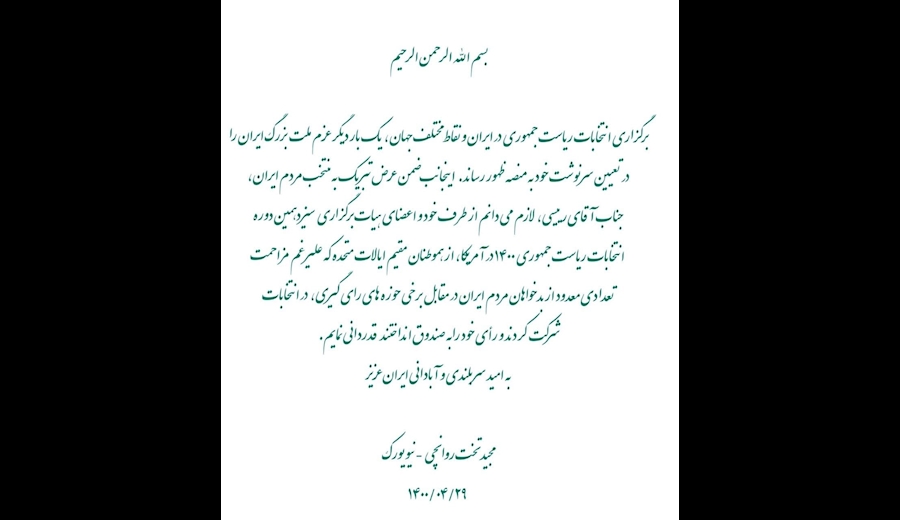 بسم الله الرحمن الرحیم
برگزاری انتخابات ریاست جمهوری در ایران و نقاط مختلف جهان، یک بار دیگر عزم ملت بزرگ ایران را
در تعیین سرنوشت خود به منصه ظهور رساند. اینجانب ضمن عرض تبریک به منتخب مردم ایران،
جناب آقای رییسی، لازم می دانم از طرف خود و اعضای هیات برگزاری سیزدهمین دوره
انتخابات ریاست جمهوری ۱۴۰۰ در آمریکا، از هموطنان مقیم ایالات متحده که علیرغم مزاحمت
تعدادی معدود از بدخواهان مردم ایران در مقابل برخی حوزه های رای گیری، در انتخابات
شرکت کردند و رأی خود را به صندوق انداختند قدردانی نمایم.
به امید سربلندی و آبادانی ایران عزیز
مجید تخت روانچی - نیویورک
۱۴۰۰/۰۴/۲۹